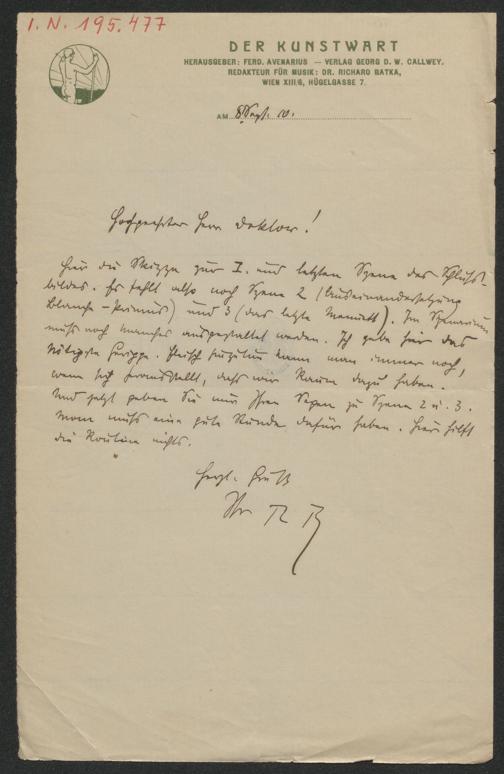 I. N. 195.477
DER KUNSTWART
HERAUSGEBER: FERD. AVENARIUS — VERLAG GEORG D. W. CALLWEY.
REDAKTEUR FÜR MUSIK: DR. RICHARD BATKA,
WIEN XIII/6, HÜGELGASSE 7.
AM 8 Sept. 10.
Hochgeehrter Herr Doktor!
Hier die Skizze zur I. und letzten Szene des Schluss-
bildes. Es fehlt also noch Szene 2 (Auseinandersetzung
Blanche - ) und 3 (das letzte Menuett). Im Szenarium
muss noch manches ausgestaltet werden. Ich gebe hier das
nötigste Gerippe. Fleisch kann man immer noch,
wenn sich herausstellt, dass wir Raum dazu haben.
Und jetzt geben Sie mir Ihren Segen zu Szene 2 u. 3.
Man muss eine gute Stunde dafür haben. Hier hilft
die Routine nichts.
Herzl. Gruß
Ihr R B